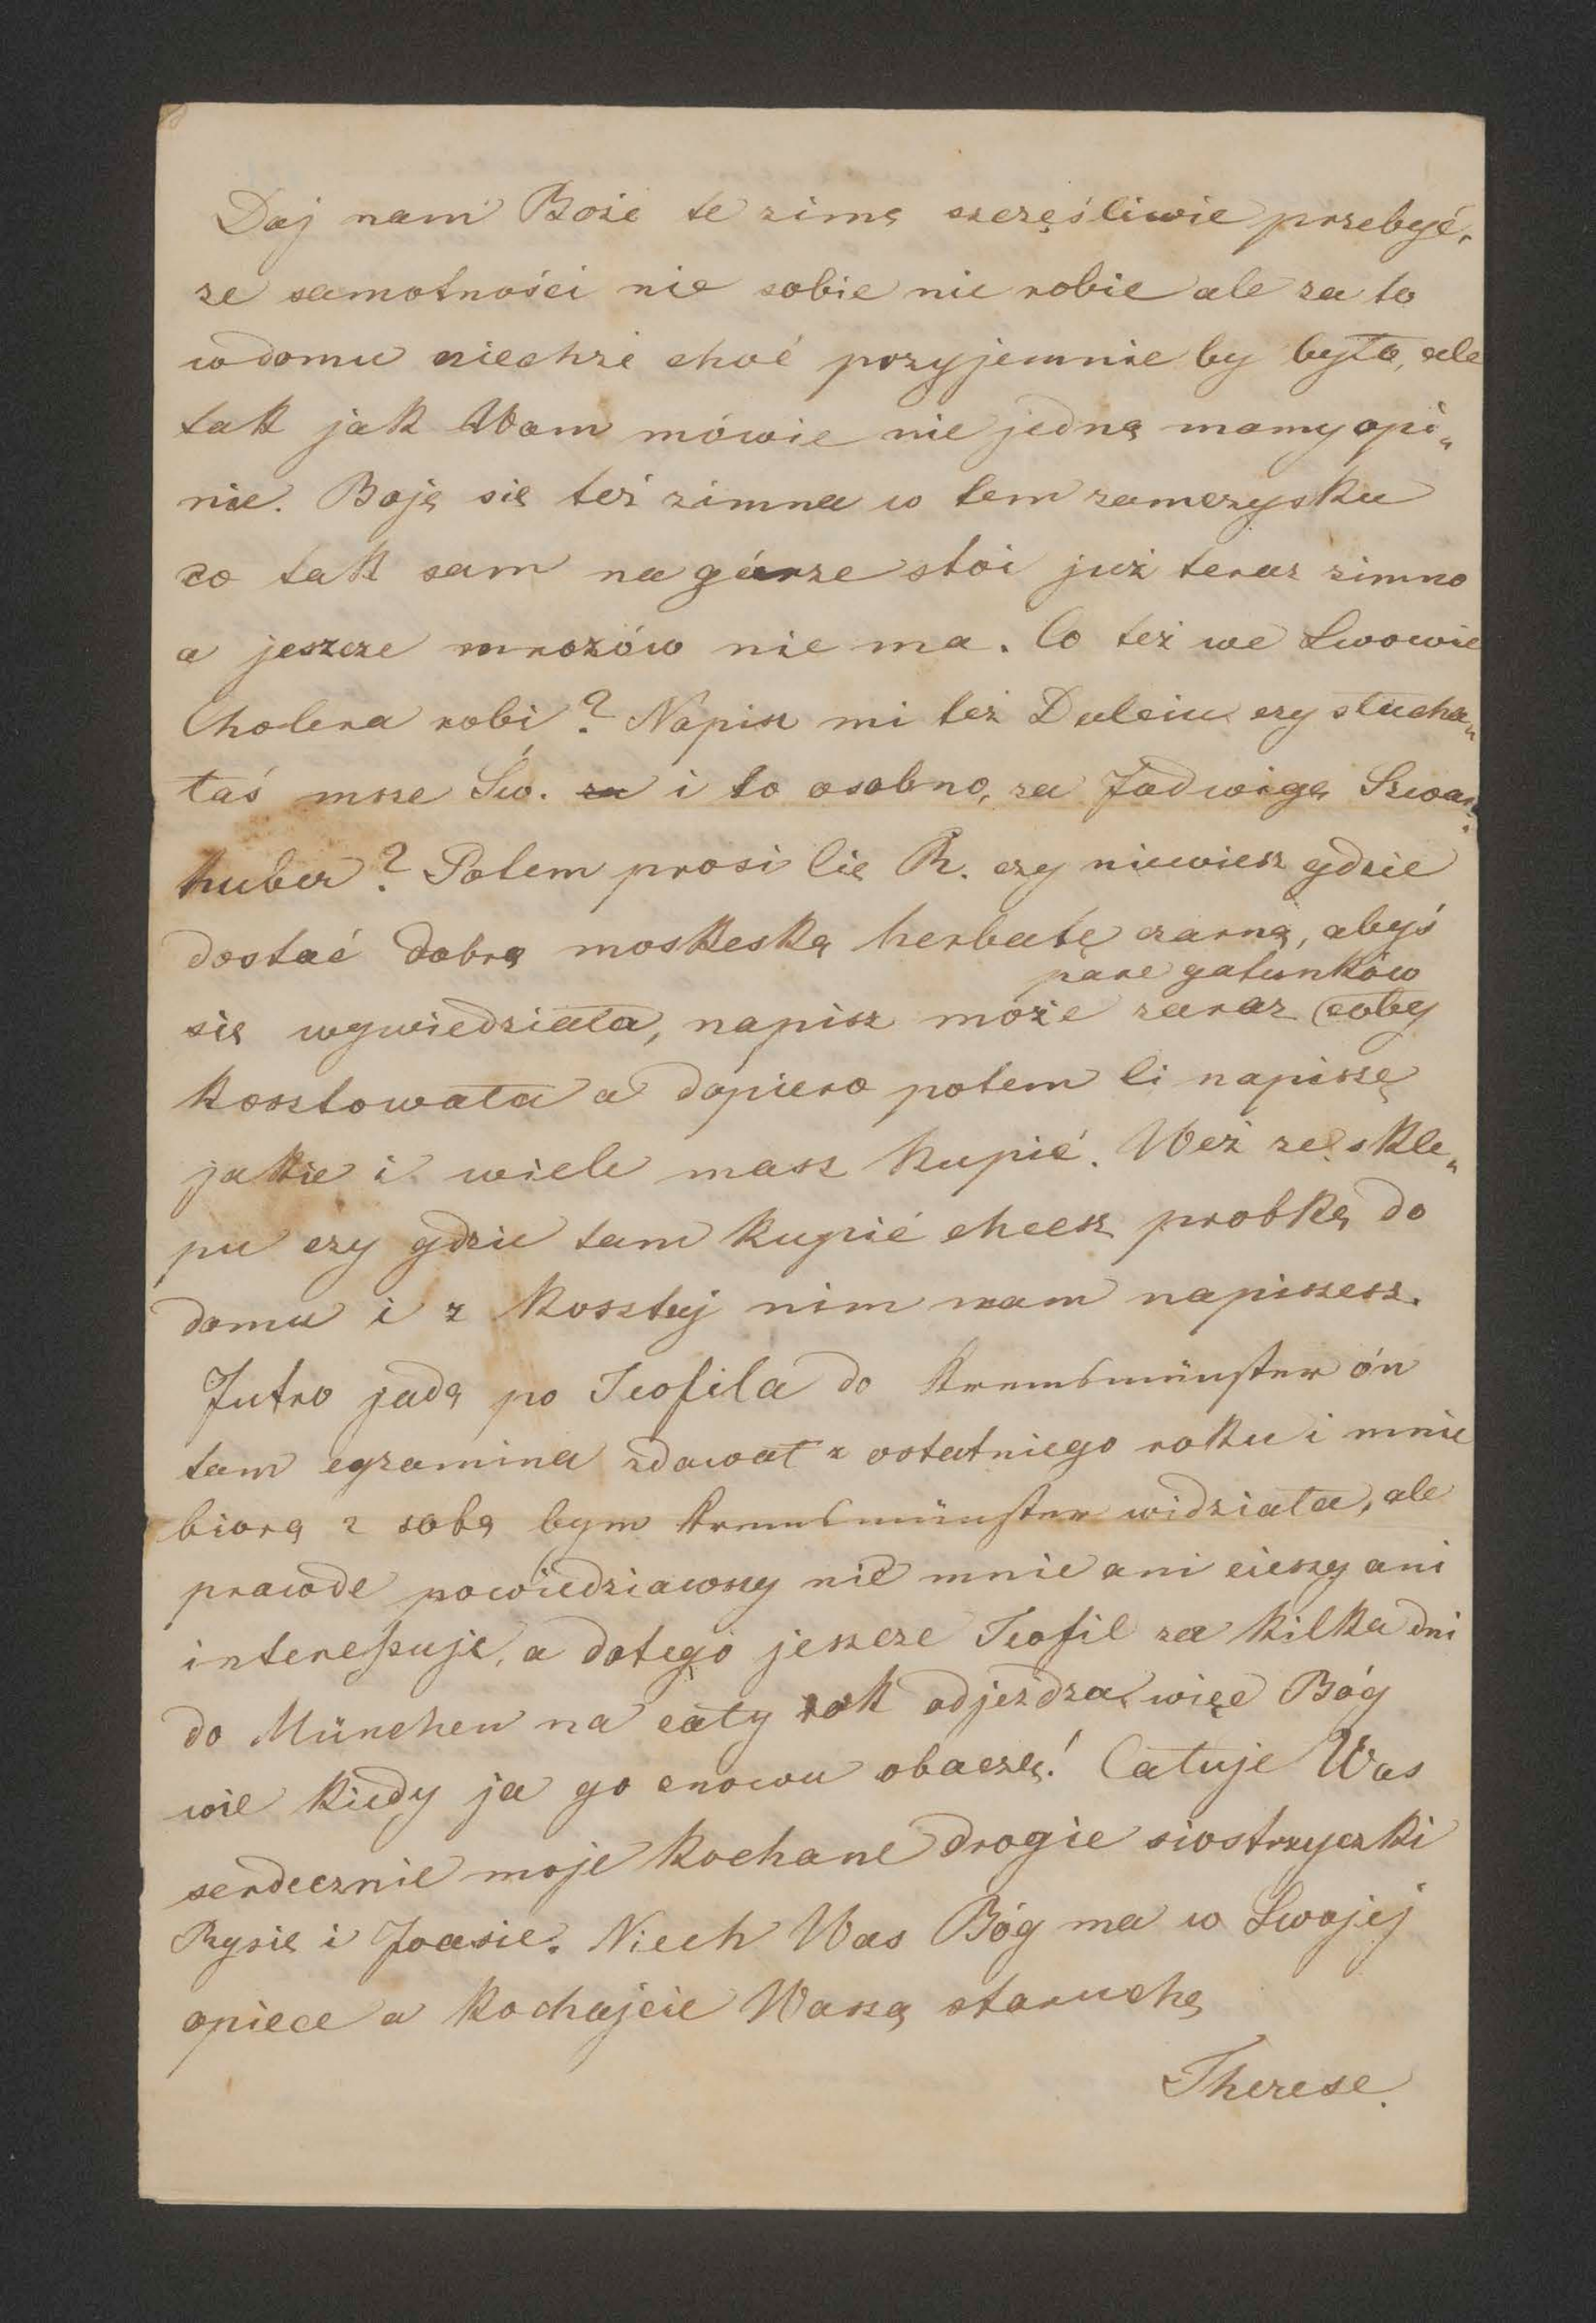 Daj nam Boże te zimę szczęśliwie przebyć,
ze samotności nic sobie nie robie ale za to
w domu niechże choć przyjemnie by było, ale
tak jak Wam mówie nie jedną mamy opi„
nie. Boję się też zimna w tem zamczysku
co tak sam na górze stoi już teraz zimno
a jeszcze mrozów nie ma. Co też we Lwowie
Cholera robi? Napisz mi też Dulciu czy słucha„
łaś msze Św. za i to osobno, za Jadwigę Szwarz„
huber? Potem prosi Cię R. czy niewiesz gdzie
dostać dobrą moskeską herbatę czarną, abyś
pare gatunków
się wywiedziała, napisz może zaraz coby
kosztowała a dopiero potem Ci napiszę
jakie i wiele masz kupić. Weź ze skle„
pu czy gdzie tam kupić chcesz probkę do
domu i z kosztuj nim nam napiszesz.
Jutro jadą po Teofila do Kremsmünster ón
tam egzamina zdawał z ostatniego roku i mnie
biorą z sobą bym Kremsmünster widziała, ale
prawde powiedziawszy nie mnie ani cieszy ani
interessuje, a dotego jeszcze Teofil za kilka dni
do München na cały rok odjeżdza, więc Bóg
wie kiedy ja go znowu obaczę! Całuje Was
serdecznie moje kochane drogie siostrzyczki
Rysię i Joasie. Niech Was Bóg ma w Swojej
opiece a kochajcie Waszą staruchę
Therese.